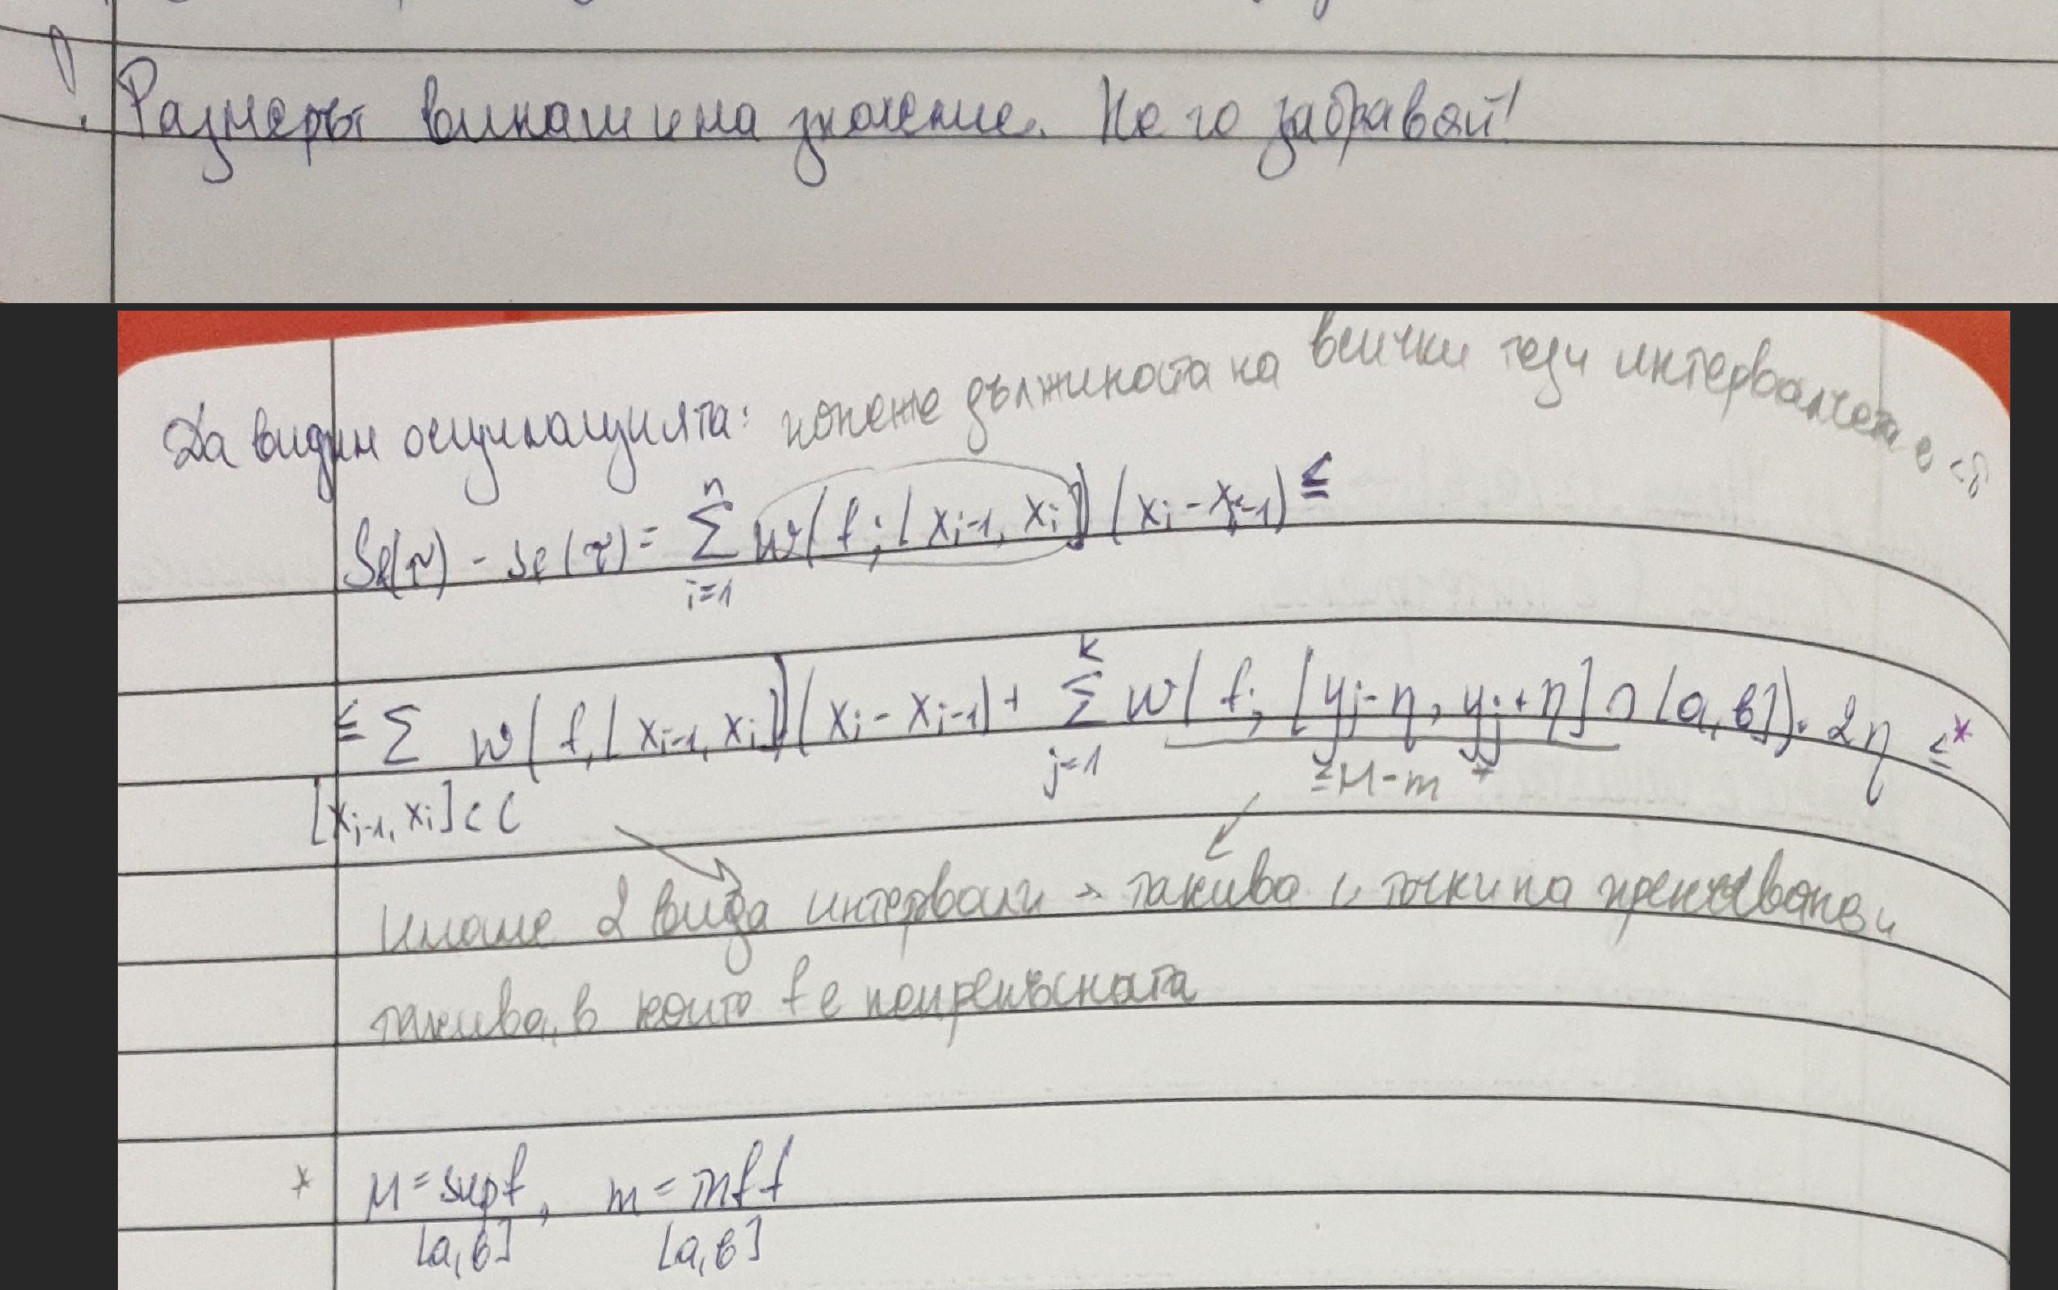 ! Размерът винаги има значение. Не го забравяй!
Да видим осцилацията: понеже дължината на всички тези интервалчета е < δ
S_f(τ) - s_f(τ) = Σ_{i=1}^{n} w(f; [x_{i-1}, x_i]) (x_i - x_{i-1}) ≤
≤ Σ w(f, [x_{i-1}, x_i]) (x_i - x_{i-1}) + Σ_{j=1}^{k} w(f; [y_j - η, y_j + η] ∩ [a, в]) · 2η ≤*
[x_{i-1}, x_i] ⊂ C
≤ M - m *
Имаме 2 вида интервали → такива с точки на прекъсване и
такива, в които f е непрекъсната
* M = sup f, m = inf f
[a, в] [a, в]